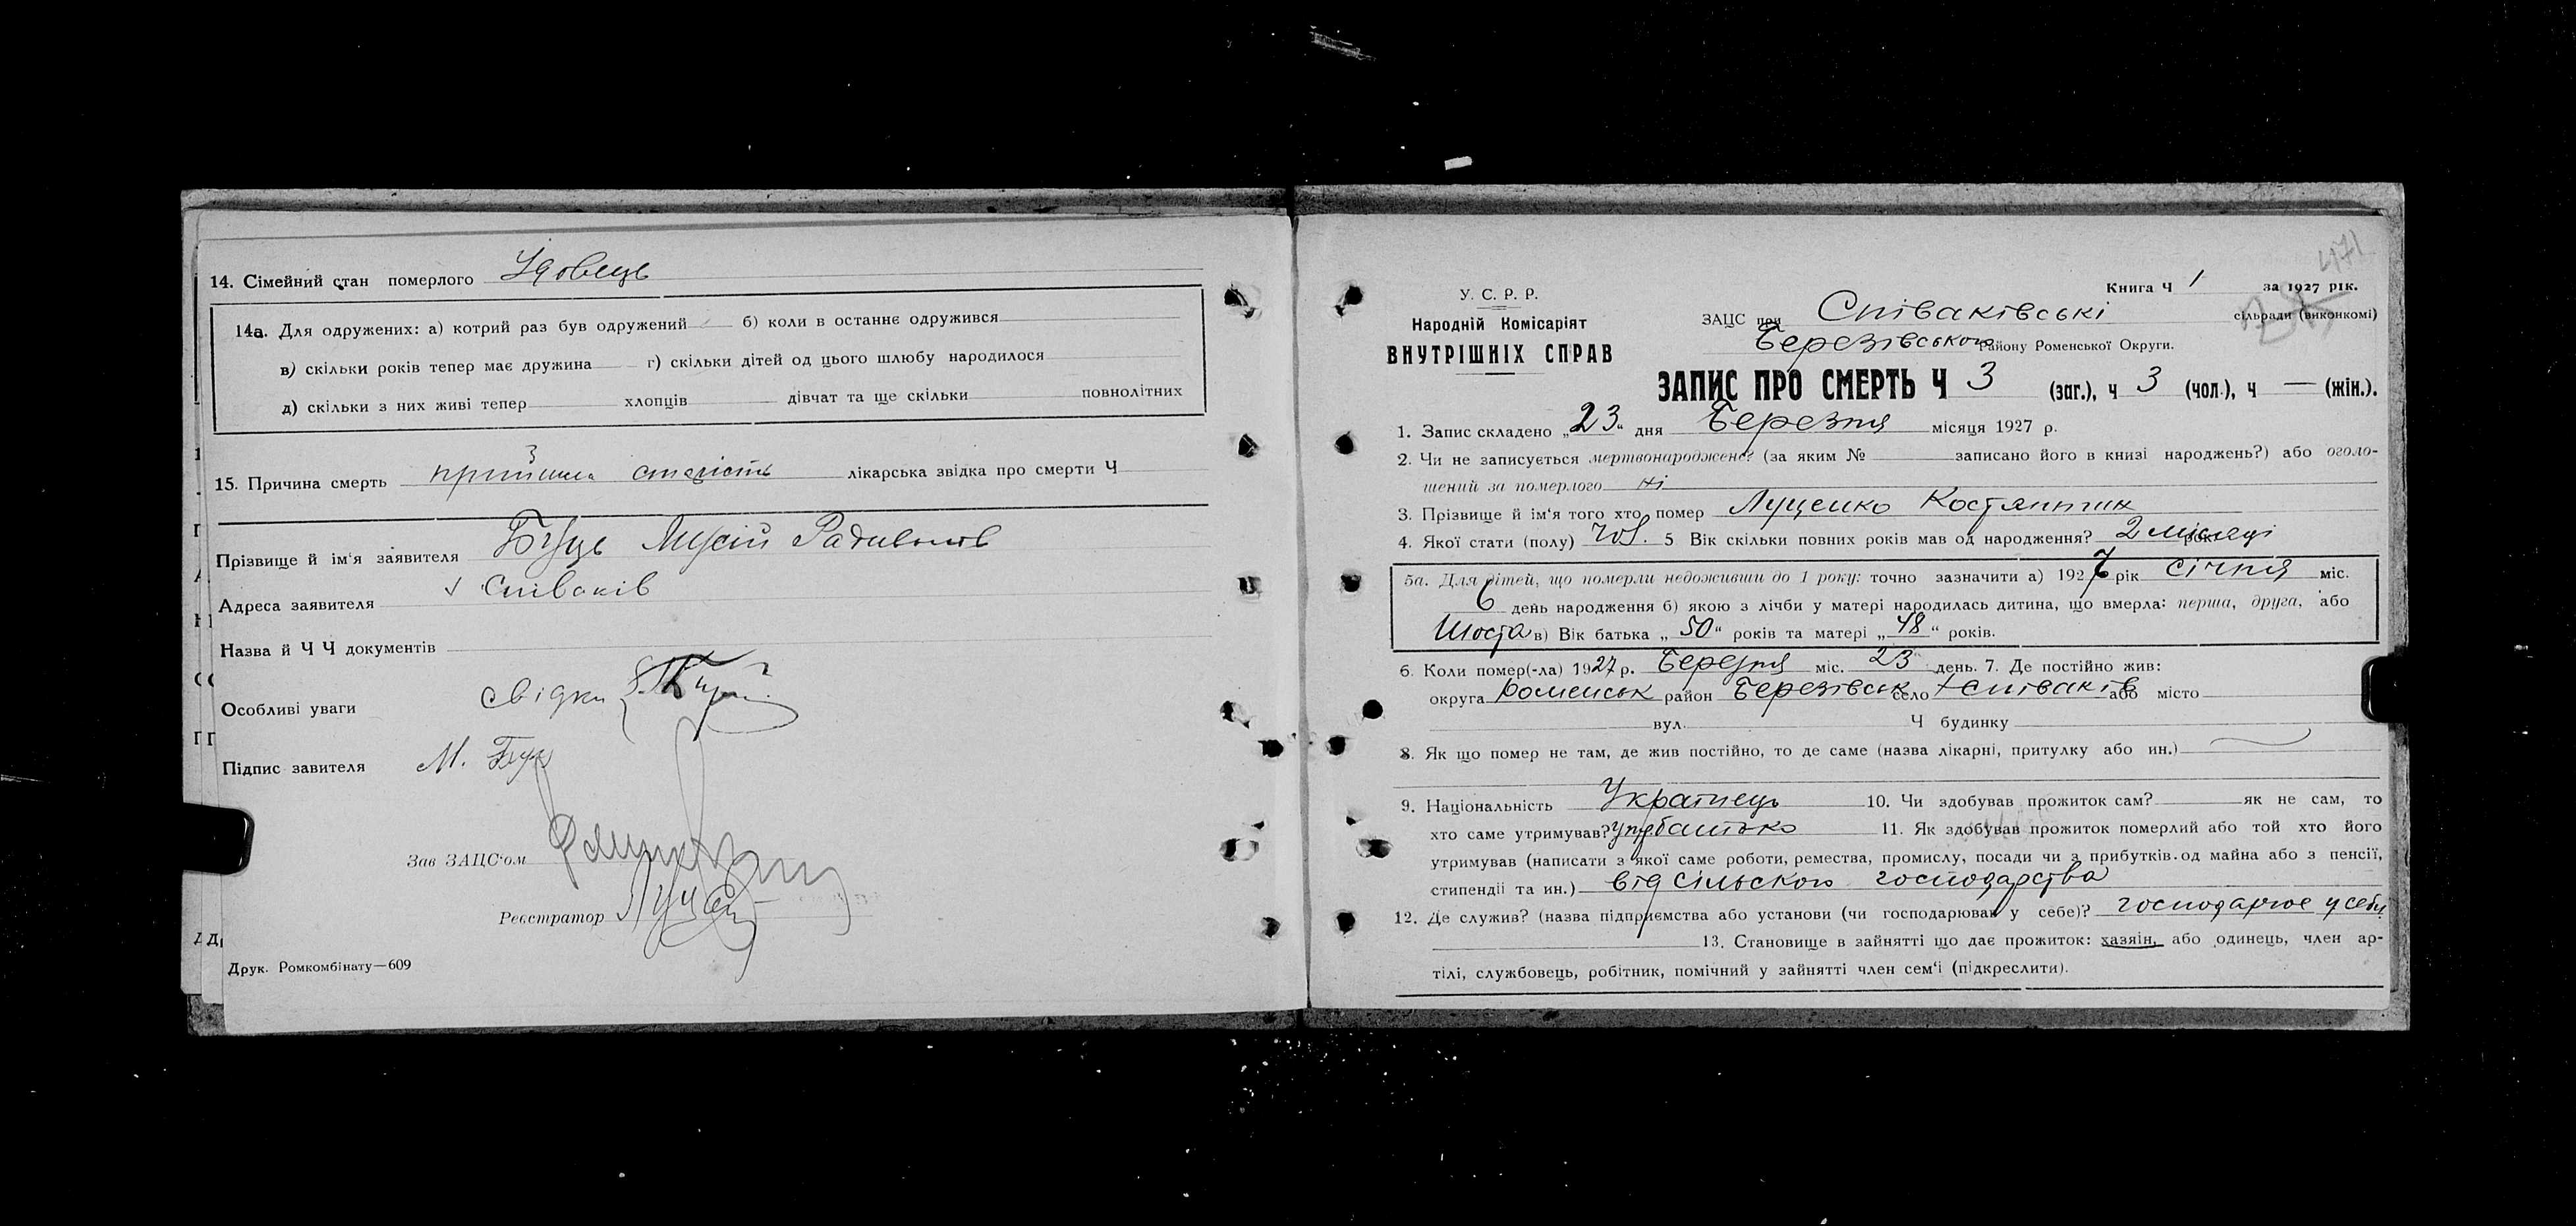 14. Сімейний стан померлого Удовець
14а. Для одружених: а) котрий раз був одружений б) коли в останнє одружився
в) скільки років тепер має дружина г) скільки дітей од цього шлюбу народилося
д) скільки з них живі тепер хлопців дівчат та ще скільки повнолітних
15. Причина смерть старість лікарська звідка про смерти Ч
Прізвище й ім'я заявителя Мусій
Адреса заявителя Співаків
Назва й Ч Ч документів
Особливі уваги свідки
Підпис завителя М.
Зав ЗАЦС'ом
Реєстратор
Друк. Ромкомбінату—609
471
Книга Ч 1 за 1927 рік.
У. С. Р. Р.
Народній Комісаріят
ВНУТРІШНІХ СПРАВ
ЗАЦС при Співаківські сільради (виконкомі)
Березівського району Роменської Округи.
ЗАПИС ПРО СМЕРТЬ Ч 3 (заг.), ч 3 (чол.), ч — (жін.).
1. Запис складено „23" дня Березня місяця 1927 р.
2. Чи не записується мертвонароджене? (за яким № записано його в книзі народжень?) або оголо-
шений за померлого ні
3. Прізвище й ім'я того хто помер Луценко Костянтин
4. Якої стати (полу) чол. 5 Вік скільки повних років мав од народження? 2 місяці
5а. Для дітей, що померли недоживши до 1 року: точно зазначити а) 1927 рік Січня міс.
6 день народження б) якою з лічби у матері народилась дитина, що вмерла: перша, друга, або
Шоста в) Вік батька „50" років та матері „48" років.
6. Коли помер(-ла) 1927 р. Березня міс. 23 день. 7. Де постійно жив:
округа Роменськ район Березівськ село Співаків або місто
вул. Ч будинку
8. Як що помер не там, де жив постійно, то де саме (назва лікарні, притулку або ин.)
9. Національність Українець 10. Чи здобував прожиток сам? як не сам, то
хто саме утримував? батько 11. Як здобував прожиток померлий або той хто його
утримував (написати з якої саме роботи, ремества, промислу, посади чи з прибутків од майна або з пенсії,
стипендії та ин.) від сільского господарства
12. Де служив? (назва підприємства або установи (чи господарював у себе)? господарює у себе
13. Становище в зайнятті що дає прожиток: хазяїн, або одинець, член ар-
тілі, службовець, робітник, помічний у зайнятті член сем'ї (підкреслити).